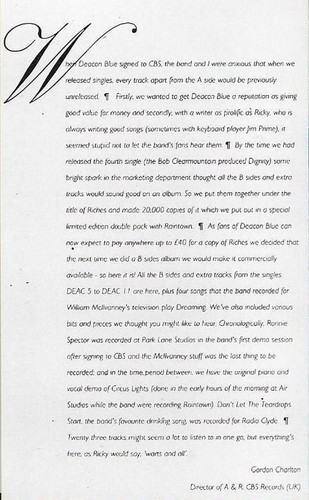 When Deacon Blue signed to CBS, the band and I were anxious that when we
released singles, every track apart from the A side would be previously
unreleased. ¶ Firstly, we wanted to get Deacon Blue a reputation as giving
good value for money and secondly, with a writer as prolific as Ricky, who is
always writing good songs (sometimes with keyboard player Jim Prime), it
seemed stupid not to let the band's fans hear them. ¶ By the time we had
released the fourth single (the Bob Clearmountain produced Dignity) some
bright spark in the marketing department thought all the B sides and extra
tracks would sound good on an album. So we put them together under the
title of Riches and made 20,000 copies of it which we put out in a special
limited edition double pack with Raintown. ¶ As fans of Deacon Blue can
now expect to pay anywhere up to £40 for a copy of Riches we decided that
the next time we did a B sides album we would make it commercially
available - so here it is! All the B sides and extra tracks from the singles
DEAC 5 to DEAC 11 are here, plus four songs that the band recorded for
William McIlvanney's television play Dreaming. We've also included various
bits and pieces we thought you might like to hear. Chronologically, Ronnie
Spector was recorded at Park Lane Studios in the band's first demo session
after signing to CBS and the McIlvanney stuff was the last thing to be
recorded; and in the time period between, we have the original piano and
vocal demo of Circus Lights (done in the early hours of the morning at Air
Studios while the band were recording Raintown). Don't Let The Teardrops
Start, the band's favourite drinking song, was recorded for Radio Clyde. ¶
Twenty three tracks might seem a lot to listen to in one go, but everything's
here, as Ricky would say, 'warts and all'.
Gordon Charlton
Director of A & R, CBS Records (UK)